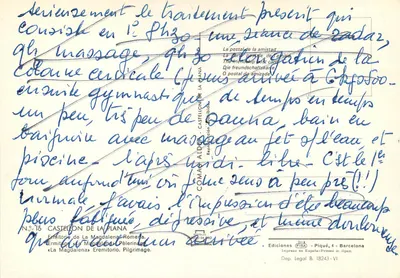 serieusement le traitement prescrit qui
consiste en 1° 8h30 une séance de radar,
9h massage, 9h30 élongation de la
colonne cervicale (je suis arrivée à 6kgr500
ensuite gymnastique, de temps en temps
un peu, très peu de sauna, bain en
baignoire avec massage au jet d'eau, et
piscine - l'après midi - libre - C'est le 1er
jour aujourd'hui où je me sens à peu près (!!)
normale, j'avais l'impression d'être beaucoup
plus fatiguée, dépressive, et même douloureuse
qu'avant mon arrivée
La postal de la amistad
Die freundschaftskarte
O postal da amizade
N.° 16 CASTELLON DE LA PLANA
Ermitorio de La Magdalena. Romería.
«La Magdalena» Eremitorio. Pilgrimage.
Ediciones Piqué, 4 - Barcelona
Dep. Legal B. 18343-VI